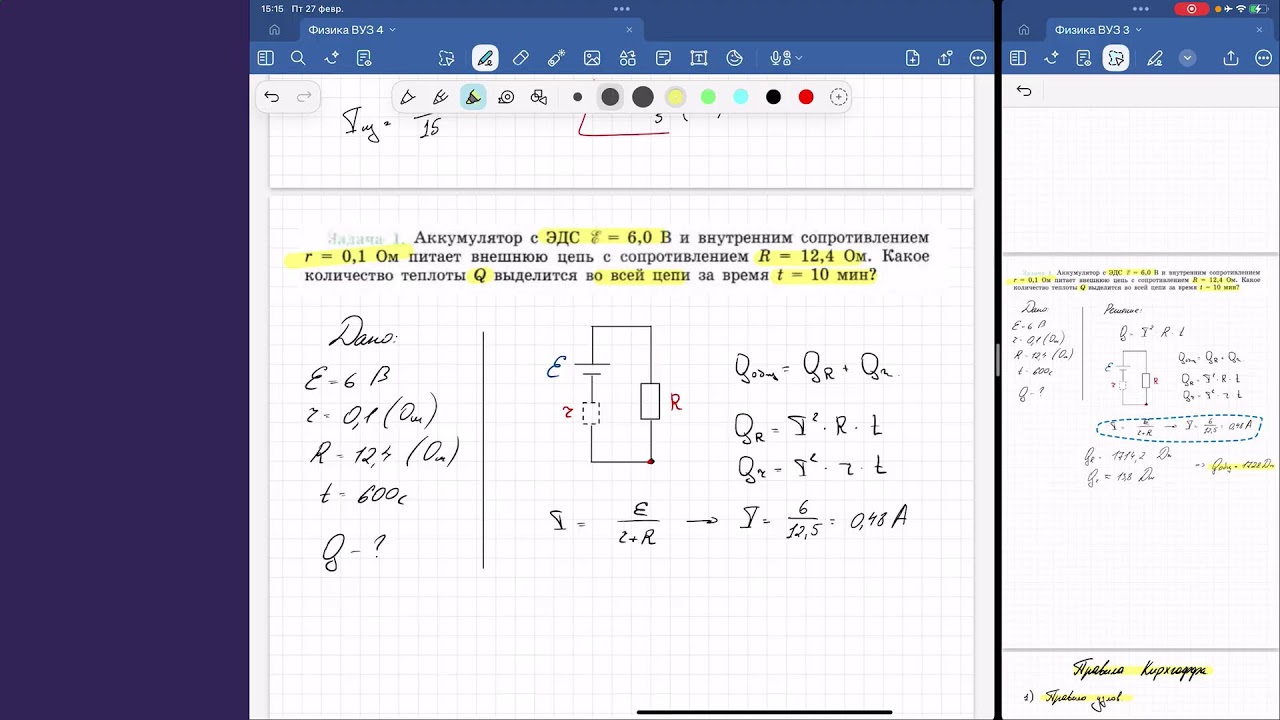 15:15 Пт 27 февр.
Физика ВУЗ 4
15
Задача 1. Аккумулятор с ЭДС ℰ = 6,0 В и внутренним сопротивлением
r = 0,1 Ом питает внешнюю цепь с сопротивлением R = 12,4 Ом. Какое
количество теплоты Q выделится во всей цепи за время t = 10 мин?
Дано:
ℰ = 6 В
r = 0,1 (Ом)
R = 12,4 (Ом)
t = 600 с
Q - ?
ℰ
r
R
Qобщ = QR + Qr
QR = I² · R · t
Qr = I² · r · t
I = ℰ / (r+R) → I = 6 / 12,5 = 0,48 А
Физика ВУЗ 3
Задача 1. Аккумулятор с ЭДС ℰ = 6,0 В и внутренним сопротивлением
r = 0,1 Ом питает внешнюю цепь с сопротивлением R = 12,4 Ом. Какое
количество теплоты Q выделится во всей цепи за время t = 10 мин?
Дано
ℰ = 6 В
r = 0,1 (Ом)
R = 12,4 (Ом)
t = 600с
Q - ?
Решение:
Q = I² R t
ℰ
r
R
Qобщ = QR + Qr
QR = I² · R · t
Qr = I² · r · t
I = ℰ / (r+R) → I = 6 / 12,5 = 0,48 А
QR = 1714,2 Дж
Qr = 13,8 Дж
=> Qобщ = 1728 Дж
Правила Кирхгоффа
1) Правило узлов